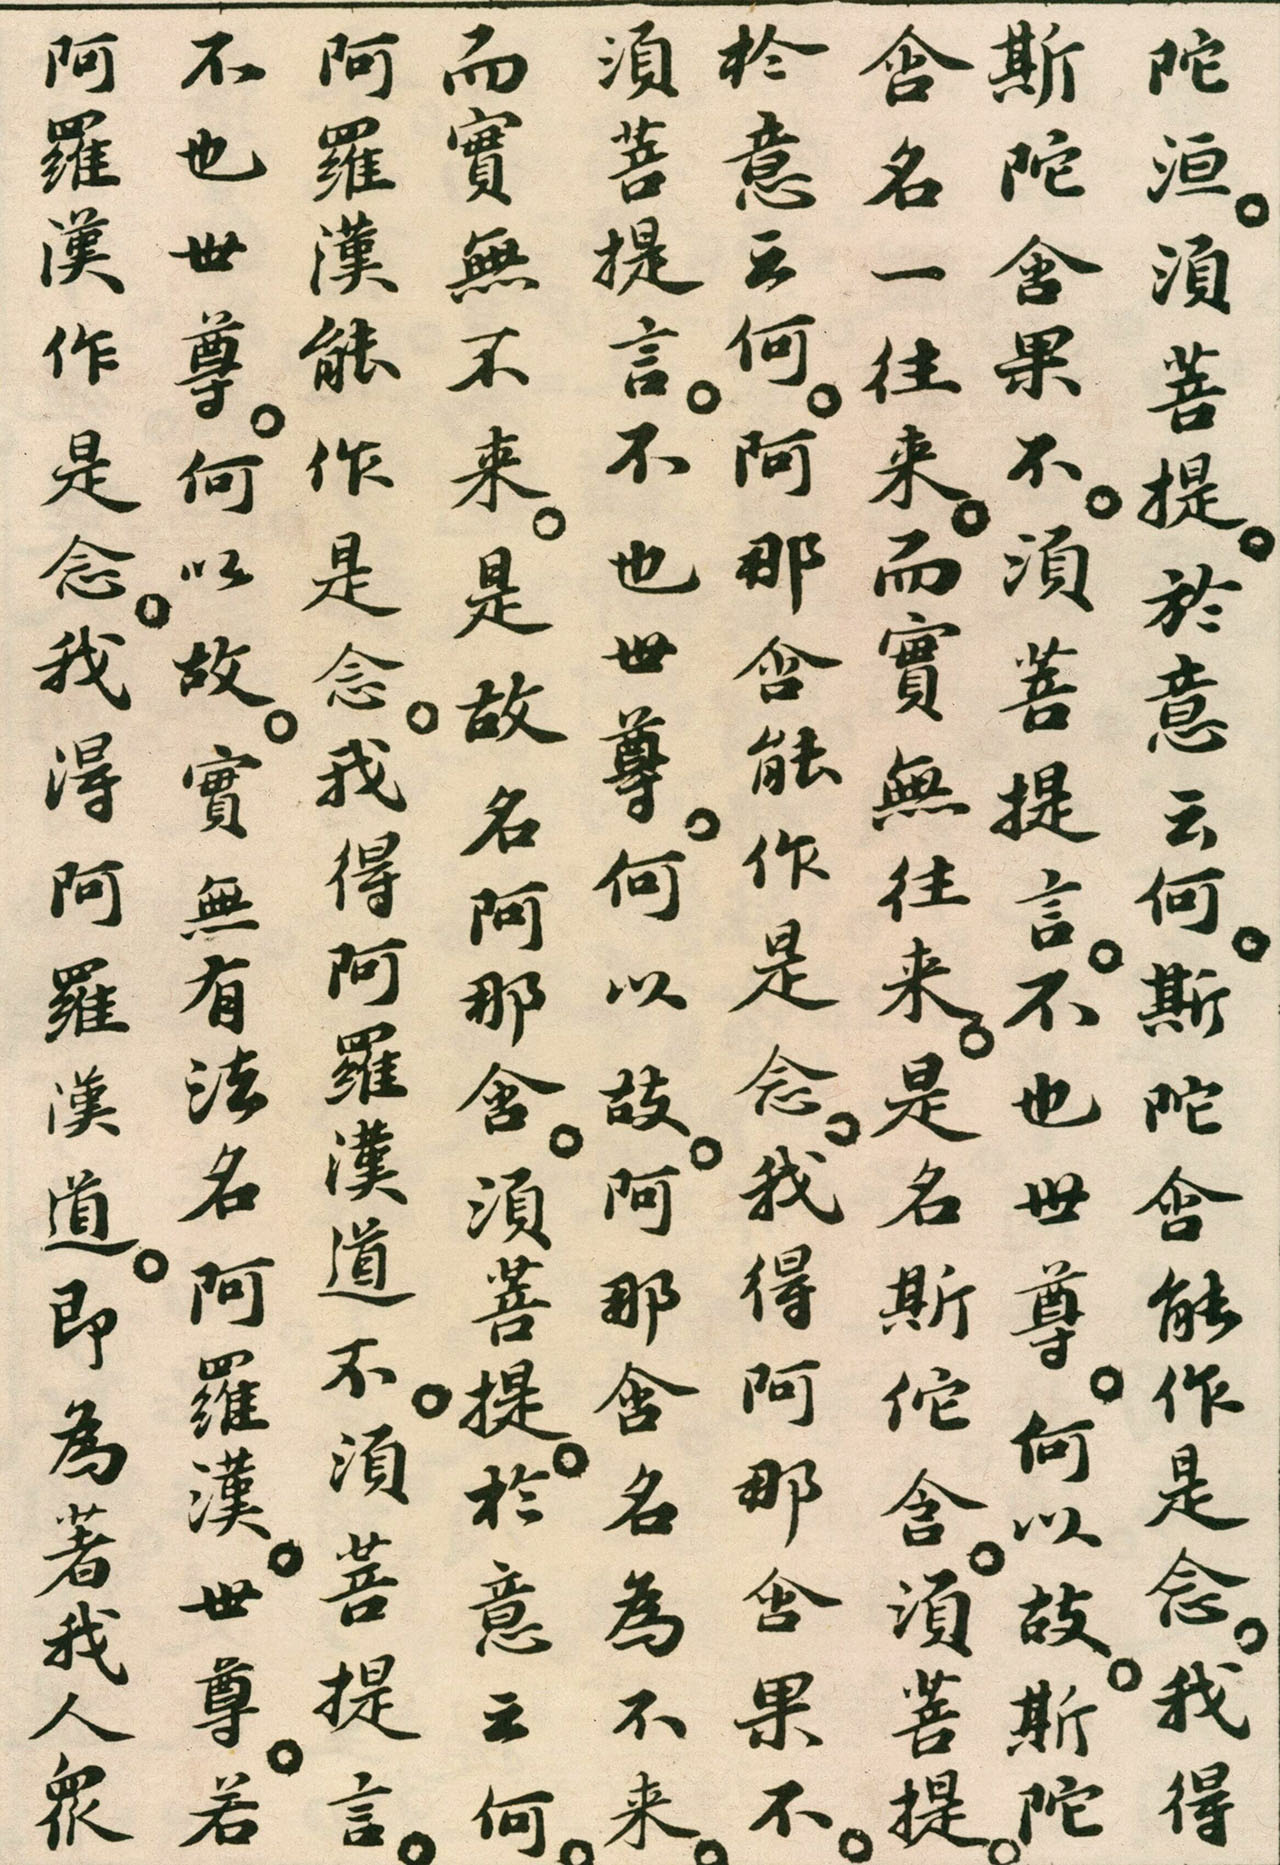 陀洹。須菩提。於意云何。斯陀含能作是念。我得
斯陀含果不。須菩提言。不也世尊。何以故。斯陀
含名一往来。而實無往来。是名斯佗含。須菩提。
於意云何。阿那含能作是念。我得阿那含果不。
須菩提言。不也世尊。何以故。阿那含名為不来。
而實無不来。是故名阿那含。須菩提。於意云何。
阿羅漢能作是念。我得阿羅漢道不。須菩提言。
不也世尊。何以故。實無有法名阿羅漢。世尊。若
阿羅漢作是念。我得阿羅漢道。即為著我人眾